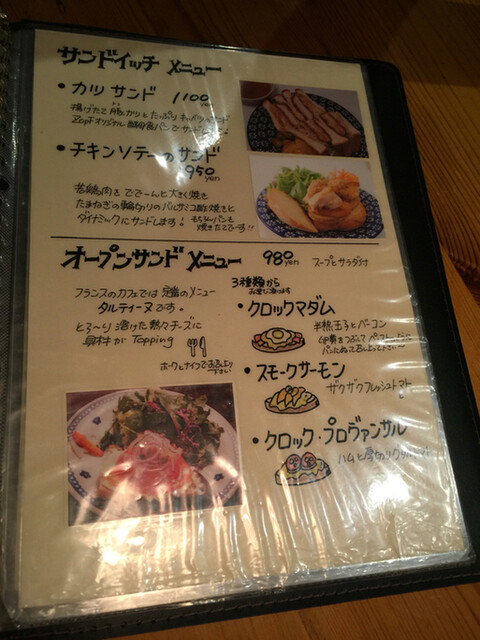 サンドイッチ メニュー
・カツ サンド 1100 yen
揚げたて 豚カツと たっぷり キャベツの
Zopfオリジナル パンで
・チキンソテーのサンド
950 yen
若鶏肉を ででーんと 大きく焼き
たまねぎの 輪切りの バルサミコ酢焼きと
ダイナミックに サンドします!
もちろんパンも 焼きたてでーす!!
オープンサンド メニュー 980 yen スープとサラダ付
フランスのカフェでは 定番のメニュー
タルティーヌです。
とろ〜り 溶けた 熱々チーズに
具材が Topping
ホークとナイフでお召し上り下さい
3種類から
お選び頂けます
・クロックマダム
半熟玉子とベーコン
・スモークサーモン
ザクザクフレッシュトマト
・クロック・プロヴァンサル
ハムと厚切り